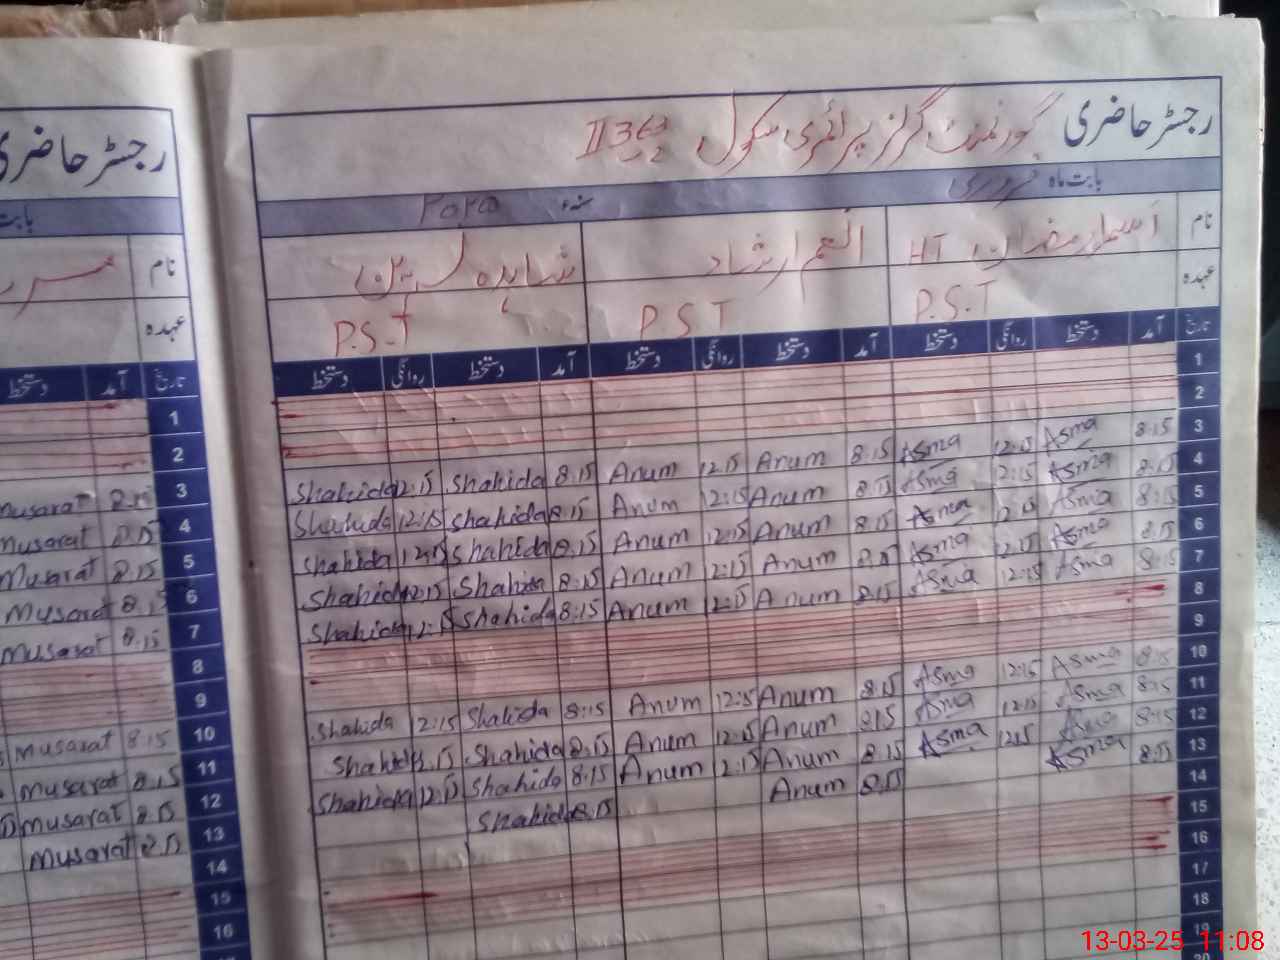 رجسٹر حاضری گورنمنٹ گرلز پرائمری سکول 363 II
بابت ماہ فروری سنہ ۲۰۲۵
نام اسماء رمضان HT انعم ارشاد شاہدہ
عہدہ P.S.T P S T P.S.T
تاریخ آمد دستخط روانگی دستخط آمد دستخط روانگی دستخط آمد دستخط روانگی دستخط
1
2
3 8:15 Asma 12:15 Asma 8:15 Anum 12:15 Anum 8:15 Shahida 12:15 Shahida
4 8:15 Asma 12:15 Asma 8:15 Anum 12:15 Anum 8:15 Shahida 12:15 Shahida
5 8:15 Asma 12:15 Asma 8:15 Anum 12:15 Anum 8:15 Shahida 12:15 Shahida
6 8:15 Asma 12:15 Asma 8:15 Anum 12:15 Anum 8:15 Shahida 12:15 Shahida
7 8:15 Asma 12:15 Asma 8:15 Anum 12:15 Anum 8:15 Shahida 12:15 Shahida
8
9
10 8:15 Asma 12:15 Asma 8:15 Anum 12:15 Anum 8:15 Shahida 12:15 Shahida
11 8:15 Asma 12:15 Asma 8:15 Anum 12:15 Anum 8:15 Shahida 12:15 Shahida
12 8:15 Asma 12:15 Asma 8:15 Anum 12:15 Anum 8:15 Shahida 12:15 Shahida
13 8:15 Asma 8:15 Anum 8:15 Shahida
14
15
16
17
18
19
20
رجسٹر حاضری
نام
عہدہ
تاریخ آمد دستخط
1
2
3 8:15 Musarat
4 8:15 Musarat
5 8:15 Musarat
6 8:15 Musarat
7 8:15 Musarat
8
9
10 8:15 Musarat
11 8:15 Musarat
12 8:15 Musarat
13 8:15 Musarat
14
15
16
13-03-25 11:08